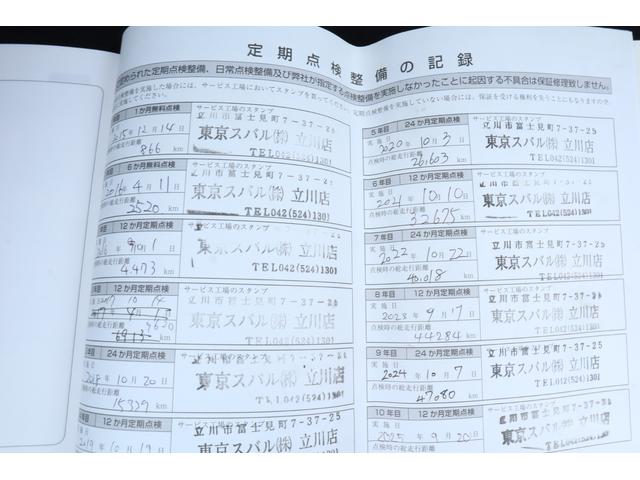 定期点検整備の記録
められた定期点検整備、日常点検整備及び弊社が指定する点検整備を実施しなかったことに起因する不具合は保証修理致しません。
1か月無料点検
サービス工場のスタンプ
2015年12月14日
立川市富士見町7-37-25
東京スバル㈱ 立川店
TEL042(524)1301
866 km
6か月無料点検
サービス工場のスタンプ
2016年4月11日
立川市富士見町7-37-25
東京スバル㈱ 立川店
TEL042(524)1301
2520 km
12か月定期点検
サービス工場のスタンプ
立川市富士見町7-37-25
東京スバル㈱ 立川店
TEL042(524)1301
4,473 km
12か月定期点検
サービス工場のスタンプ
立川市富士見町7-37-25
東京スバル㈱ 立川店
TEL042(524)1301
24か月定期点検
サービス工場のスタンプ
2018年10月20日
立川市富士見町7-37-25
東京スバル㈱ 立川店
TEL042(524)1301
15339 km
12か月定期点検
サービス工場のスタンプ
2019年10月19日
立川市富士見町7-37-25
東京スバル㈱ 立川店
5年目 24か月定期点検
サービス工場のスタンプ
実施日
2020年10月3日
点検時の総走行距離
26,603 km
立川市富士見町7-37-25
東京スバル㈱ 立川店
TEL042(524)1301
6年目 12か月定期点検
サービス工場のスタンプ
実施日
2021年10月10日
点検時の総走行距離
32675 km
立川市富士見町7-37-25
東京スバル㈱ 立川店
TEL042(524)1301
7年目 24か月定期点検
サービス工場のスタンプ
実施日
2022年10月22日
点検時の総走行距離
40,018 km
立川市富士見町7-37-25
東京スバル㈱ 立川店
TEL042(524)1301
8年目 12か月定期点検
サービス工場のスタンプ
実施日
2023年9月17日
点検時の総走行距離
44284 km
立川市富士見町7-37-25
東京スバル㈱ 立川店
TEL042(524)1301
9年目 24か月定期点検
サービス工場のスタンプ
実施日
2024年10月7日
点検時の総走行距離
47080 km
立川市富士見町7-37-25
東京スバル㈱ 立川店
TEL042(524)1301
10年目 12か月定期点検
サービス工場のスタンプ
実施日
2025年9月20日
点検時の総走行距離
立川市富士見町7-37-25
東京スバル㈱ 立川店
TEL042(524)1301